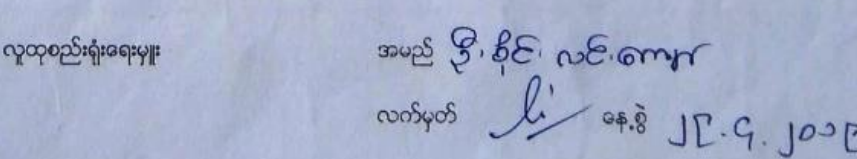 လူထုစည်းရုံးရေးမှူး အမည် ဦး စိုင်း လင်း ကျော်
လက်မှတ် နေ့စွဲ ၂၉.၄.၂၀၁၉